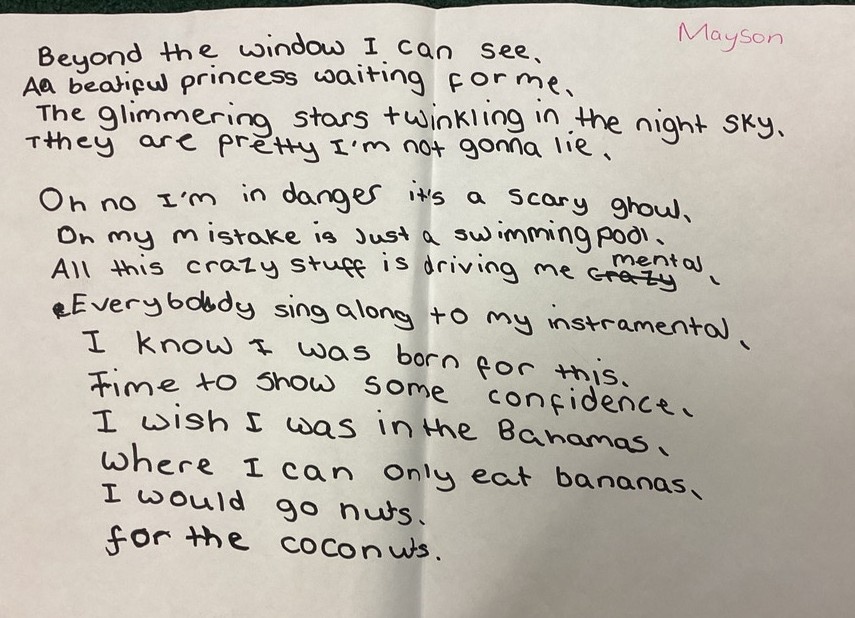 Mayson
Beyond the window I can see.
Aa beatiful princess waiting for me.
The glimmering stars twinkling in the night sky.
Tthey are pretty I'm not gonna lie.
Oh no I'm in danger it's a scary ghoul.
Oh my mistake is just a swimming pool.
All this crazy stuff is driving me crazy mental.
eEverybobdy sing along to my instramental.
I know I was born for this.
Time to show some confidence.
I wish I was in the Bahamas.
where I can only eat bananas.
I would go nuts.
for the coconuts.